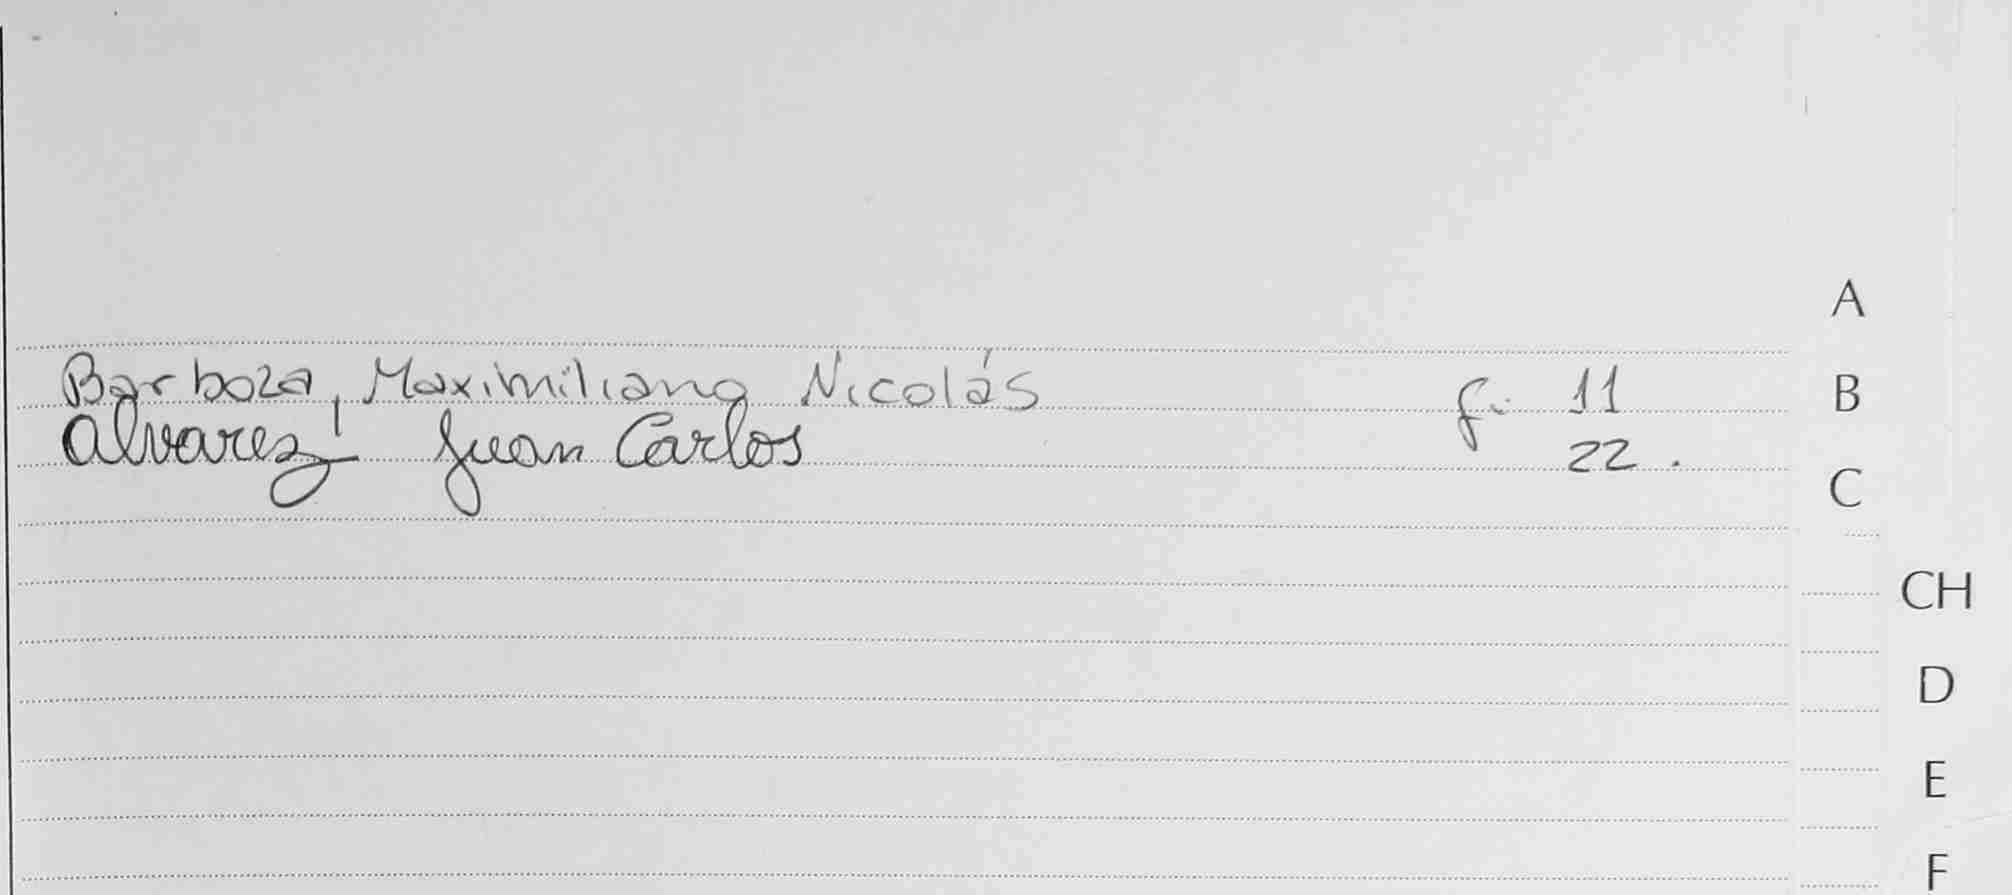 A
Barboza, Maximiliano Nicolás f. 11
B
Alvarez Juan Carlos 22.
C
CH
D
E
F